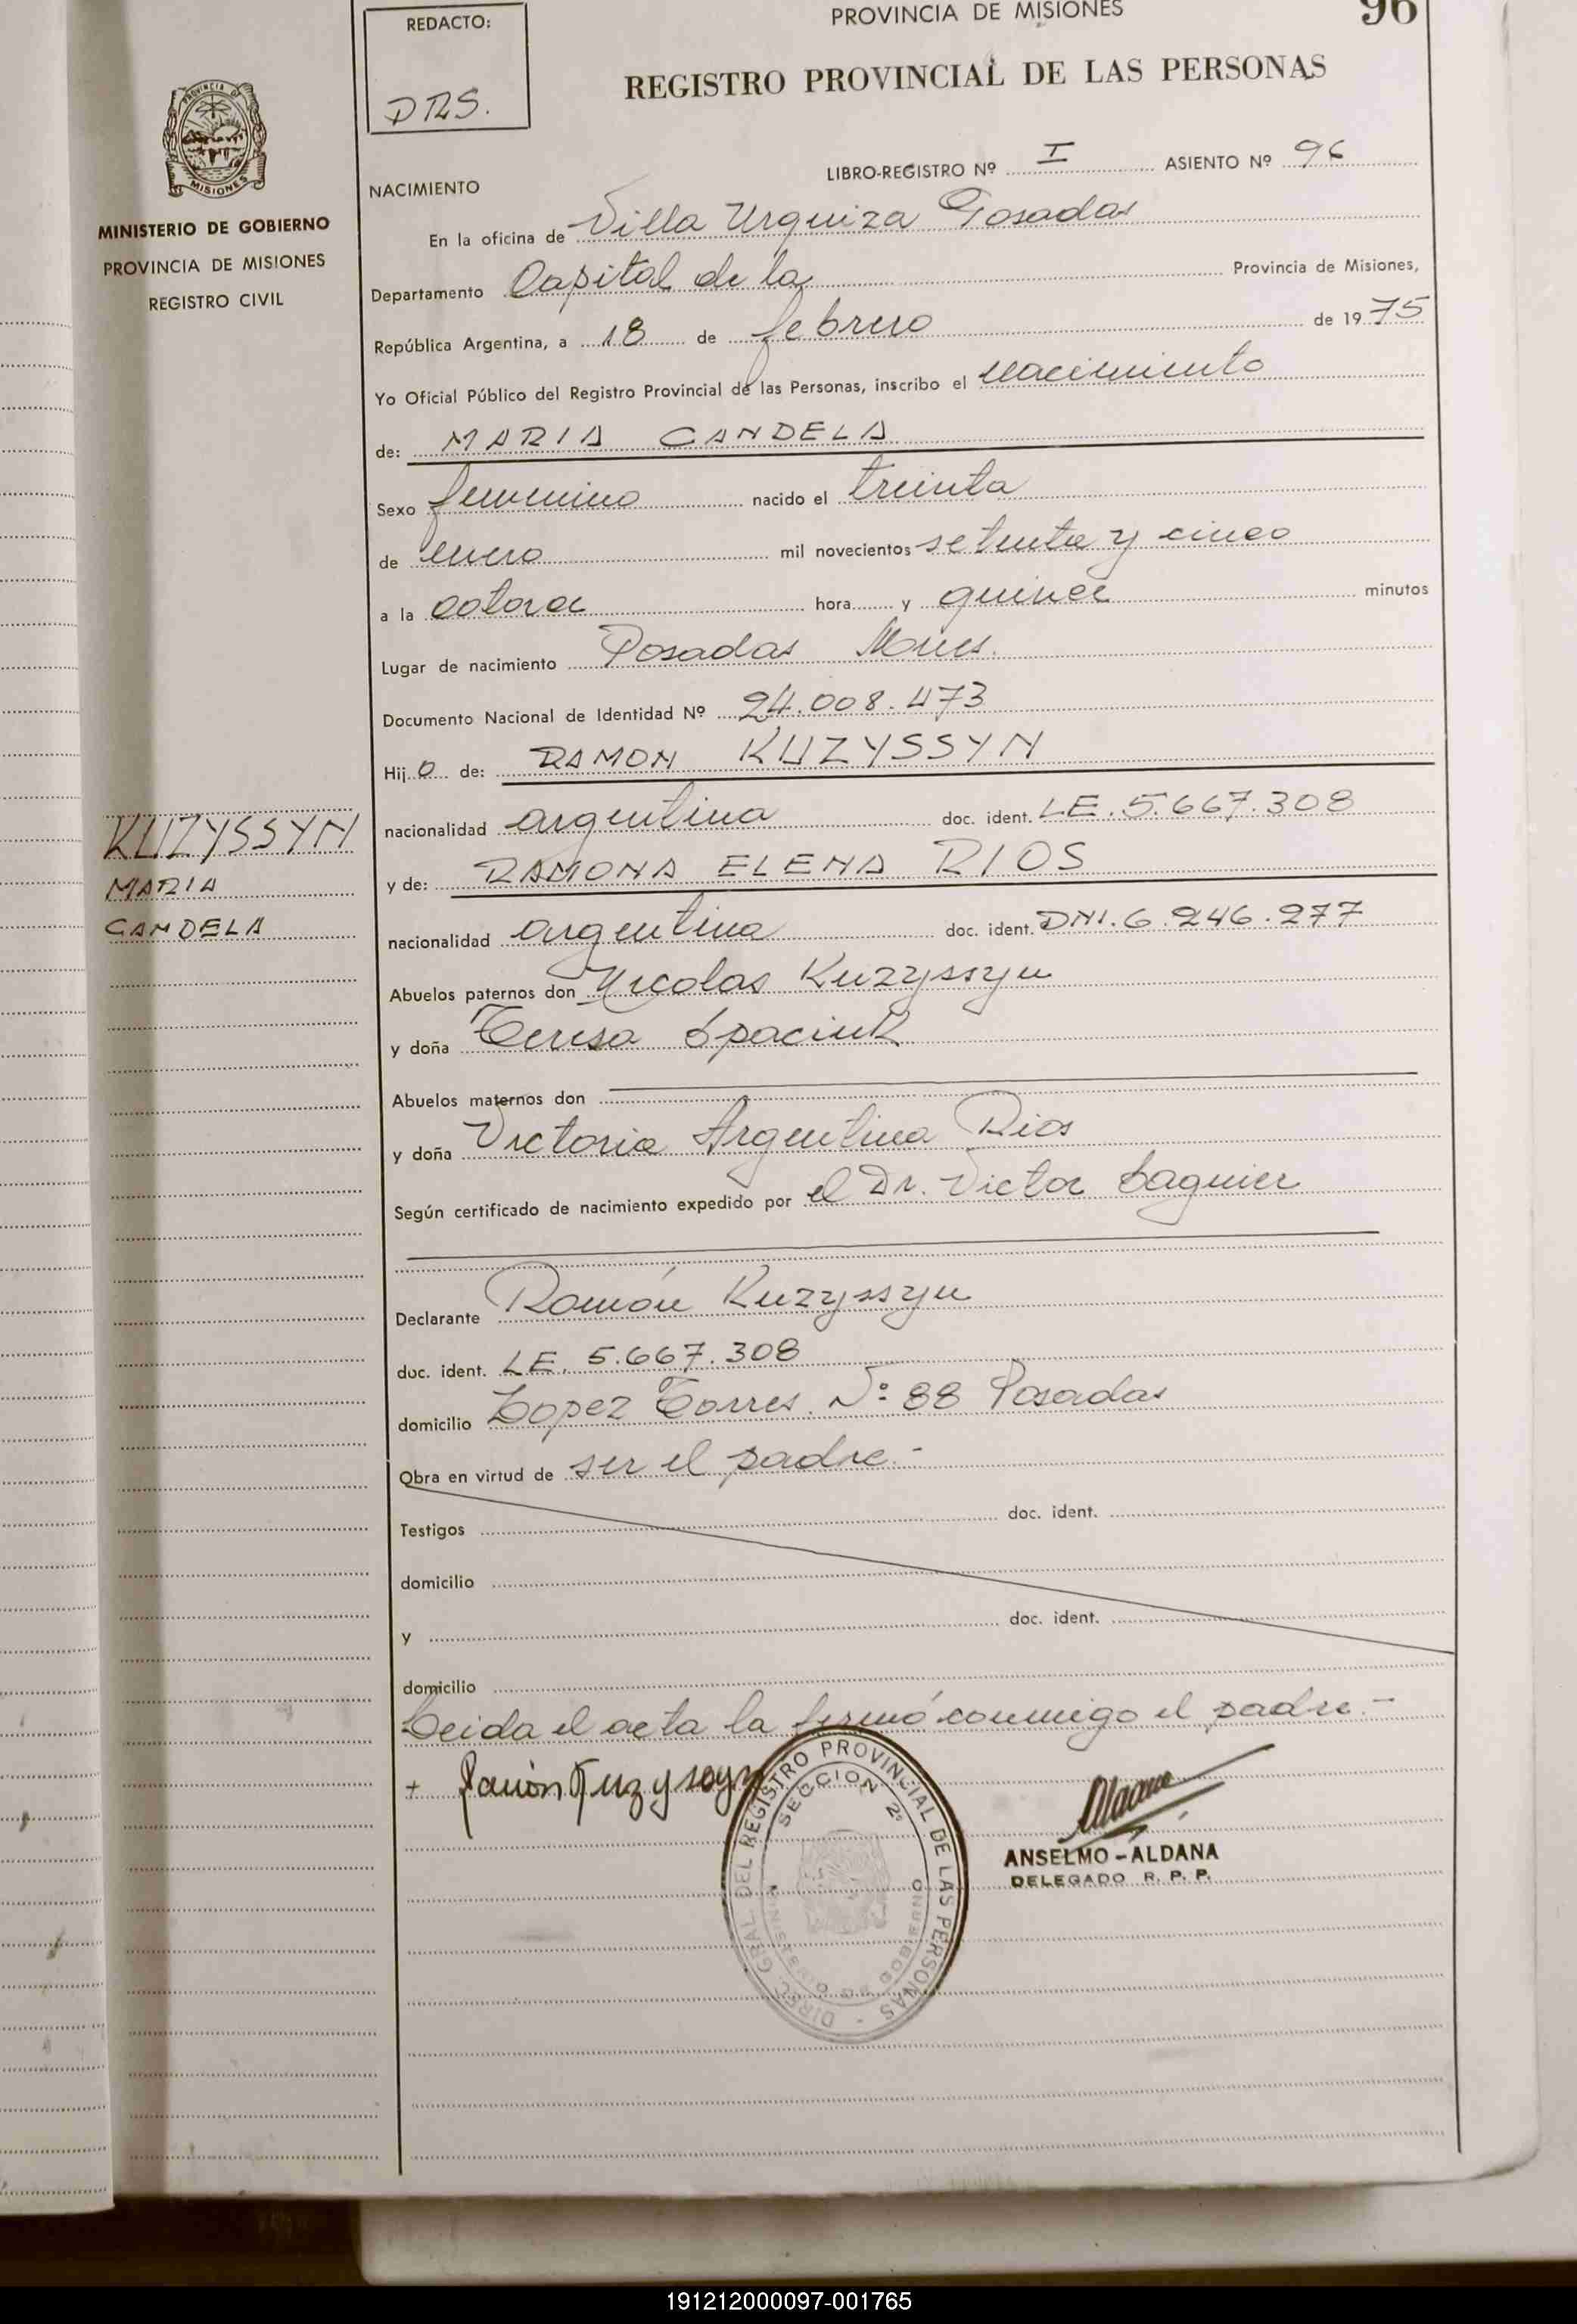 REDACTO:
DRS.
PROVINCIA DE MISIONES
96
REGISTRO PROVINCIAL DE LAS PERSONAS
PROVINCIA DE
MISIONES
MINISTERIO DE GOBIERNO
PROVINCIA DE MISIONES
REGISTRO CIVIL
LIBRO-REGISTRO Nº I ASIENTO Nº 96
NACIMIENTO
En la oficina de Villa Urquiza Posadas
Departamento Capital de la Provincia de Misiones,
República Argentina, a 18 de febrero de 1975
Yo Oficial Público del Registro Provincial de las Personas, inscribo el nacimiento
de: MARIA CANDELA
Sexo femenino nacido el treinta
de enero mil novecientos setenta y cinco
a la catorce hora y quince minutos
Lugar de nacimiento Posadas Mnes.
Documento Nacional de Identidad Nº 24.008.473
Hijo de: RAMON KUZYSSYN
nacionalidad argentina doc. ident. LE. 5.667.308
y de: RAMONA ELENA RIOS
nacionalidad argentina doc. ident. DNI. 6.246.277
KUZYSSYN
MARIA
CANDELA
Abuelos paternos don Nicolas Kuzyssyn
y doña Teresa Spaciuk
Abuelos maternos don
y doña Victoria Argentina Rios
Según certificado de nacimiento expedido por el Dr. Victor Saguier
Declarante Ramón Kuzyssyn
doc. ident. LE. 5.667.308
domicilio Lopez Torres Nº 88 Posadas
Obra en virtud de ser el padre.-
Testigos doc. ident.
domicilio
y doc. ident.
domicilio
Leida el acta la firmó conmigo el padre.-
+ Ramón Kuzyssyn
DIREC. GRAL DEL REGISTRO PROVINCIAL DE LAS PERSONAS
SECCION 2º
MINISTERIO DE GOBIERNO
ANSELMO - ALDANA
DELEGADO R. P. P.
191212000097-001765